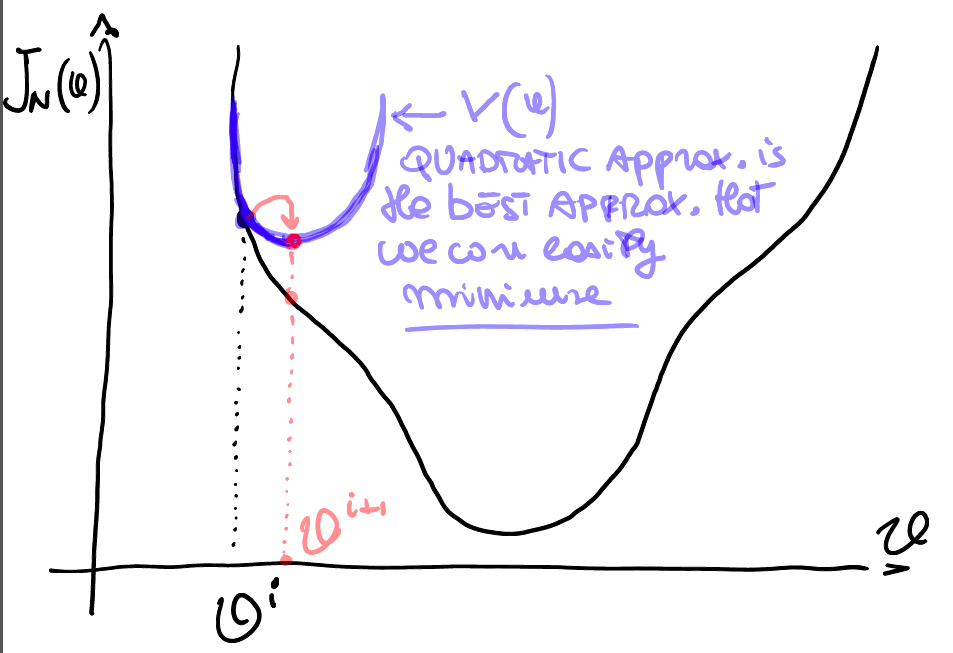 J_N(ϑ)
← V(ϑ)
QUADRATIC APPROX. is
the bEST APPROX. that
we can easily
minimise
ϑ^{i+1}
ϑ
ϑ^i